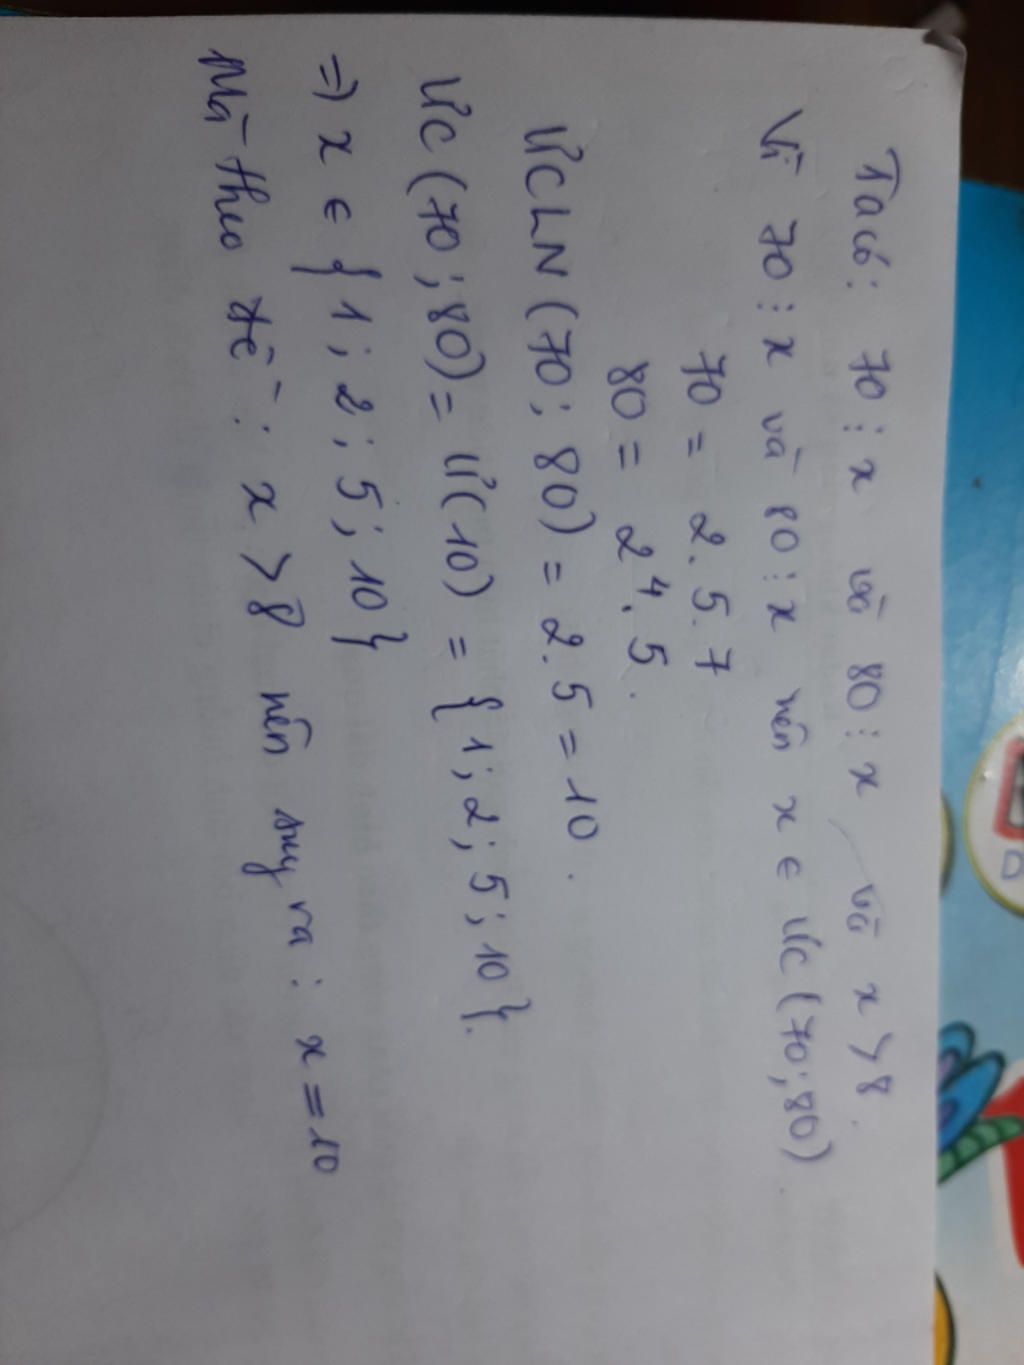 Ta có: 70 ⋮ x và 80 ⋮ x và x > 8.
Vì 70 ⋮ x và 80 ⋮ x nên x ∈ ƯC (70; 80)
70 = 2. 5. 7
80 = 2⁴. 5.
ƯCLN (70; 80) = 2. 5 = 10.
ƯC (70; 80) = Ư(10) = {1; 2; 5; 10}.
=> x ∈ {1; 2; 5; 10}
Mà theo đề: x > 8 nên suy ra: x = 10
D